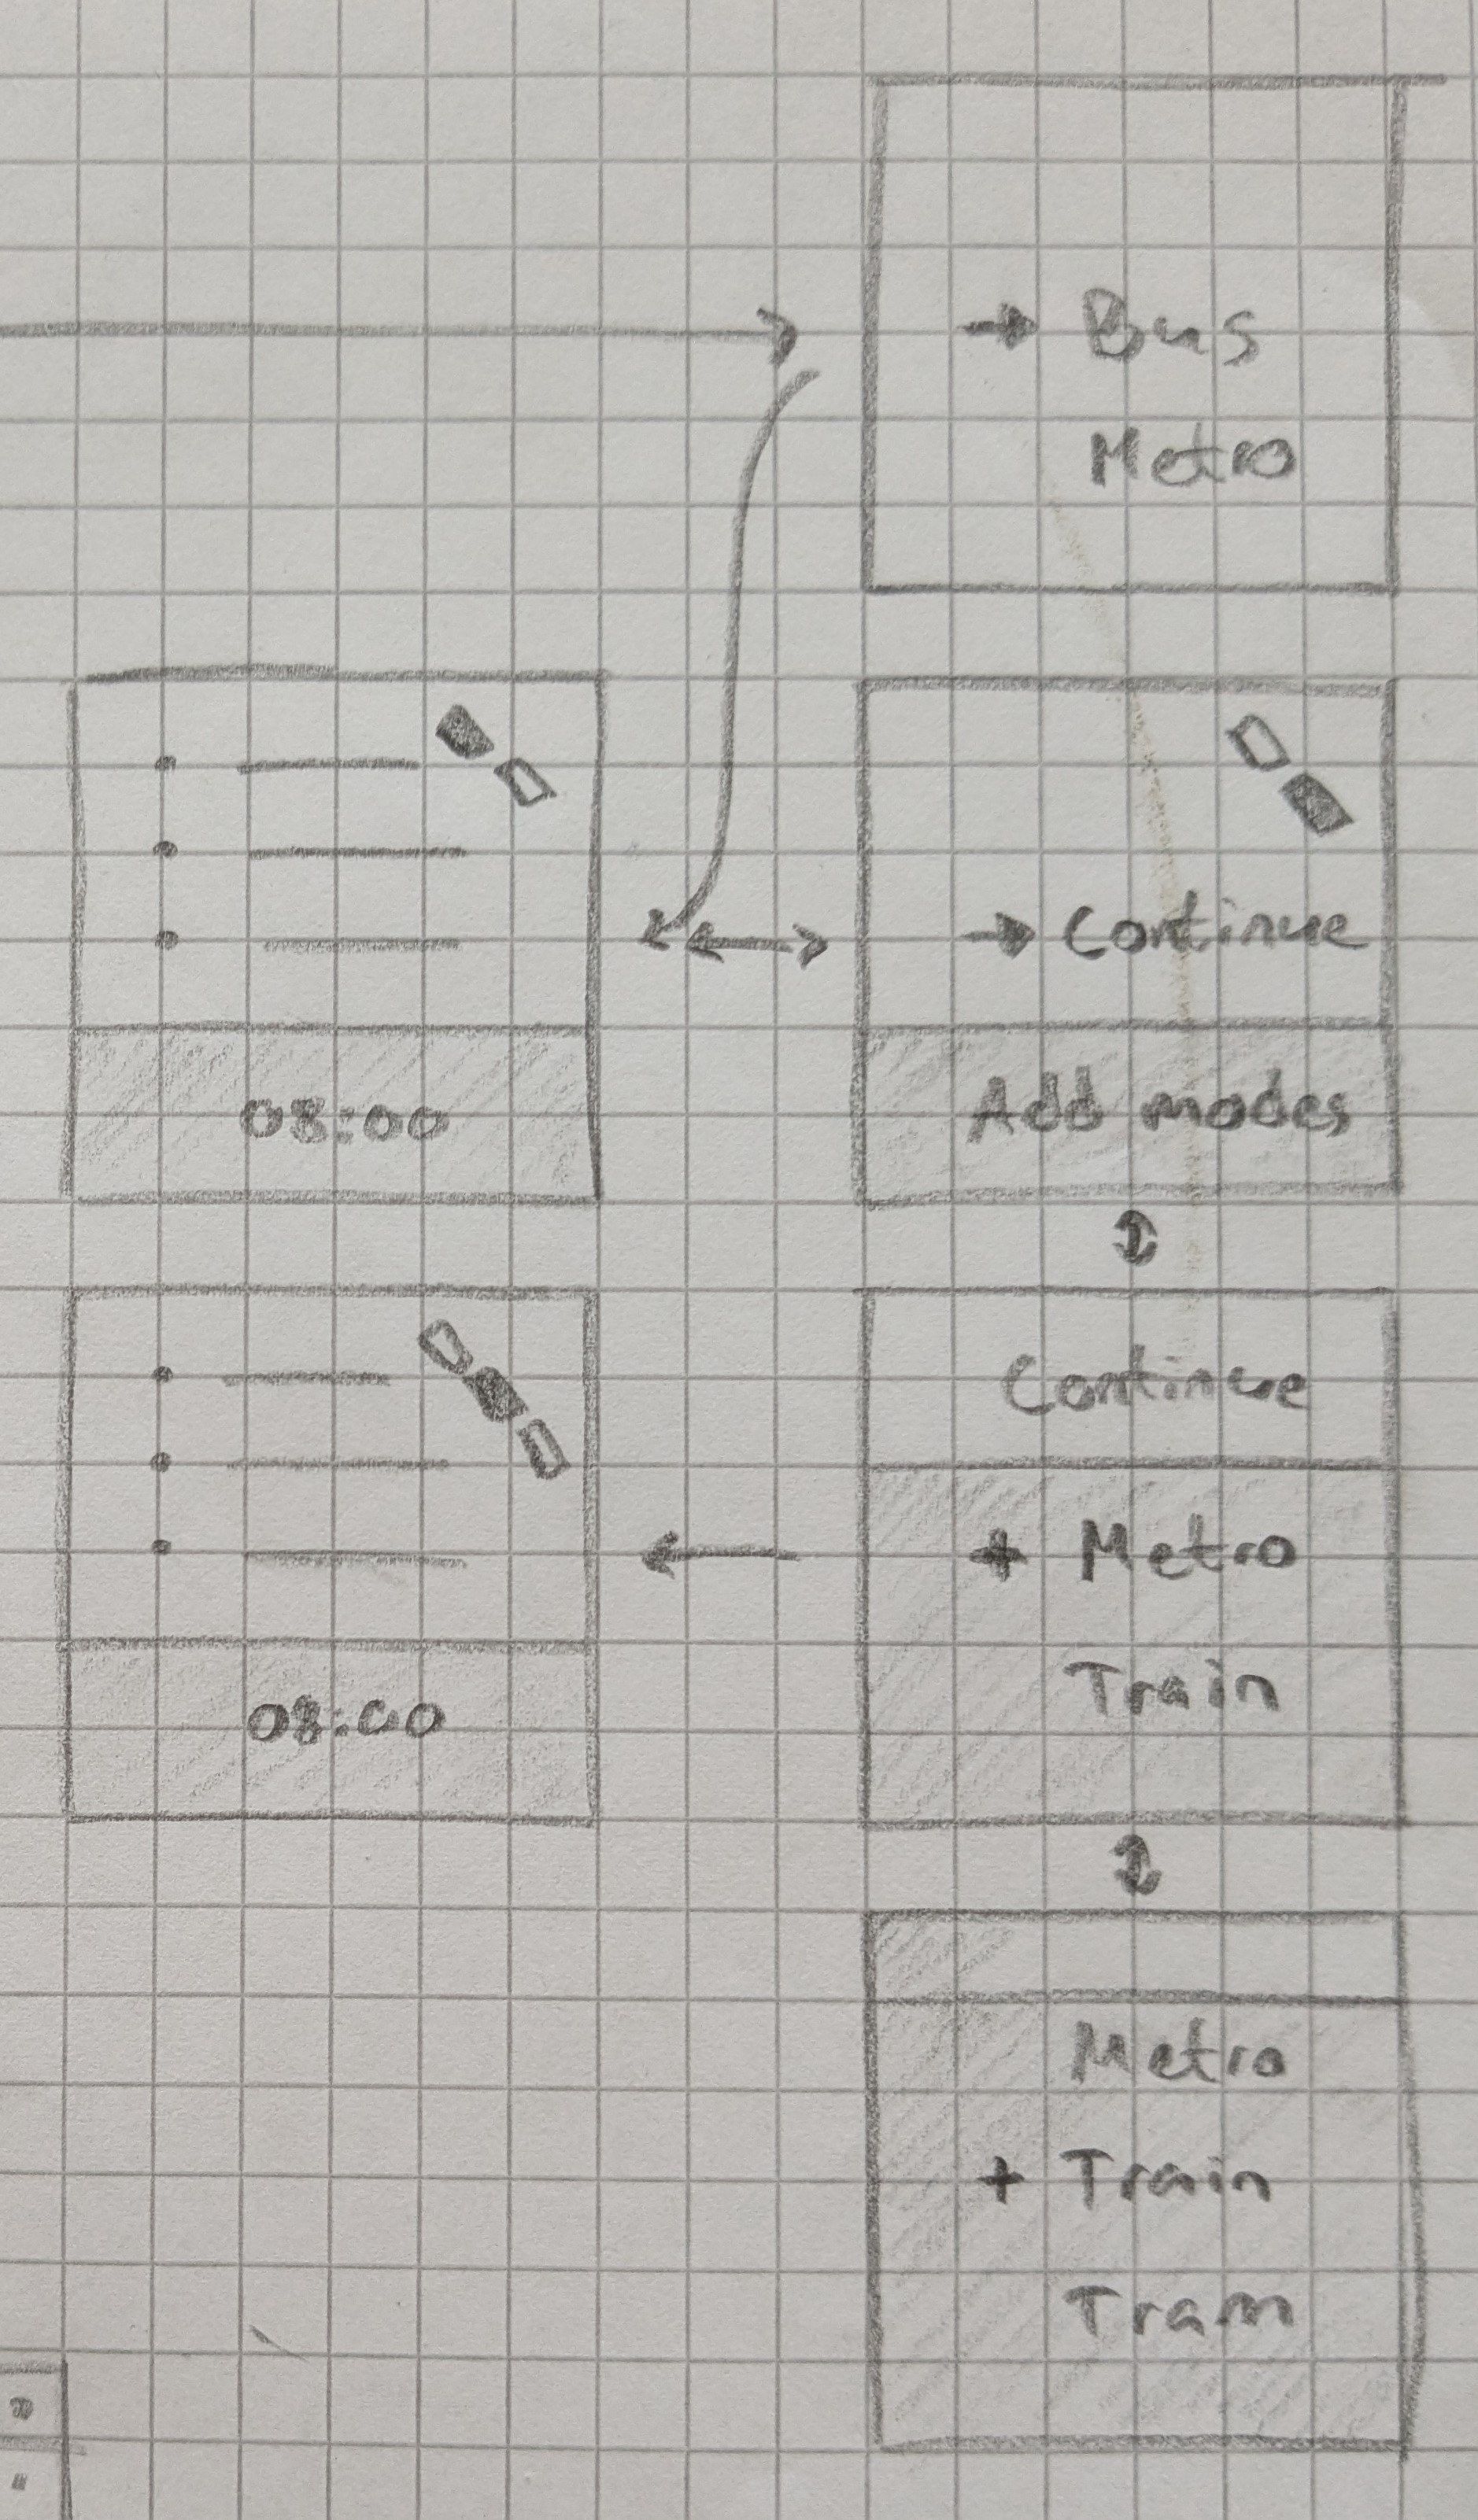 → Bus
Metro
08:00
→ Continue
Add modes
08:00
Continue
+ Metro
Train
Metro
+ Train
Tram